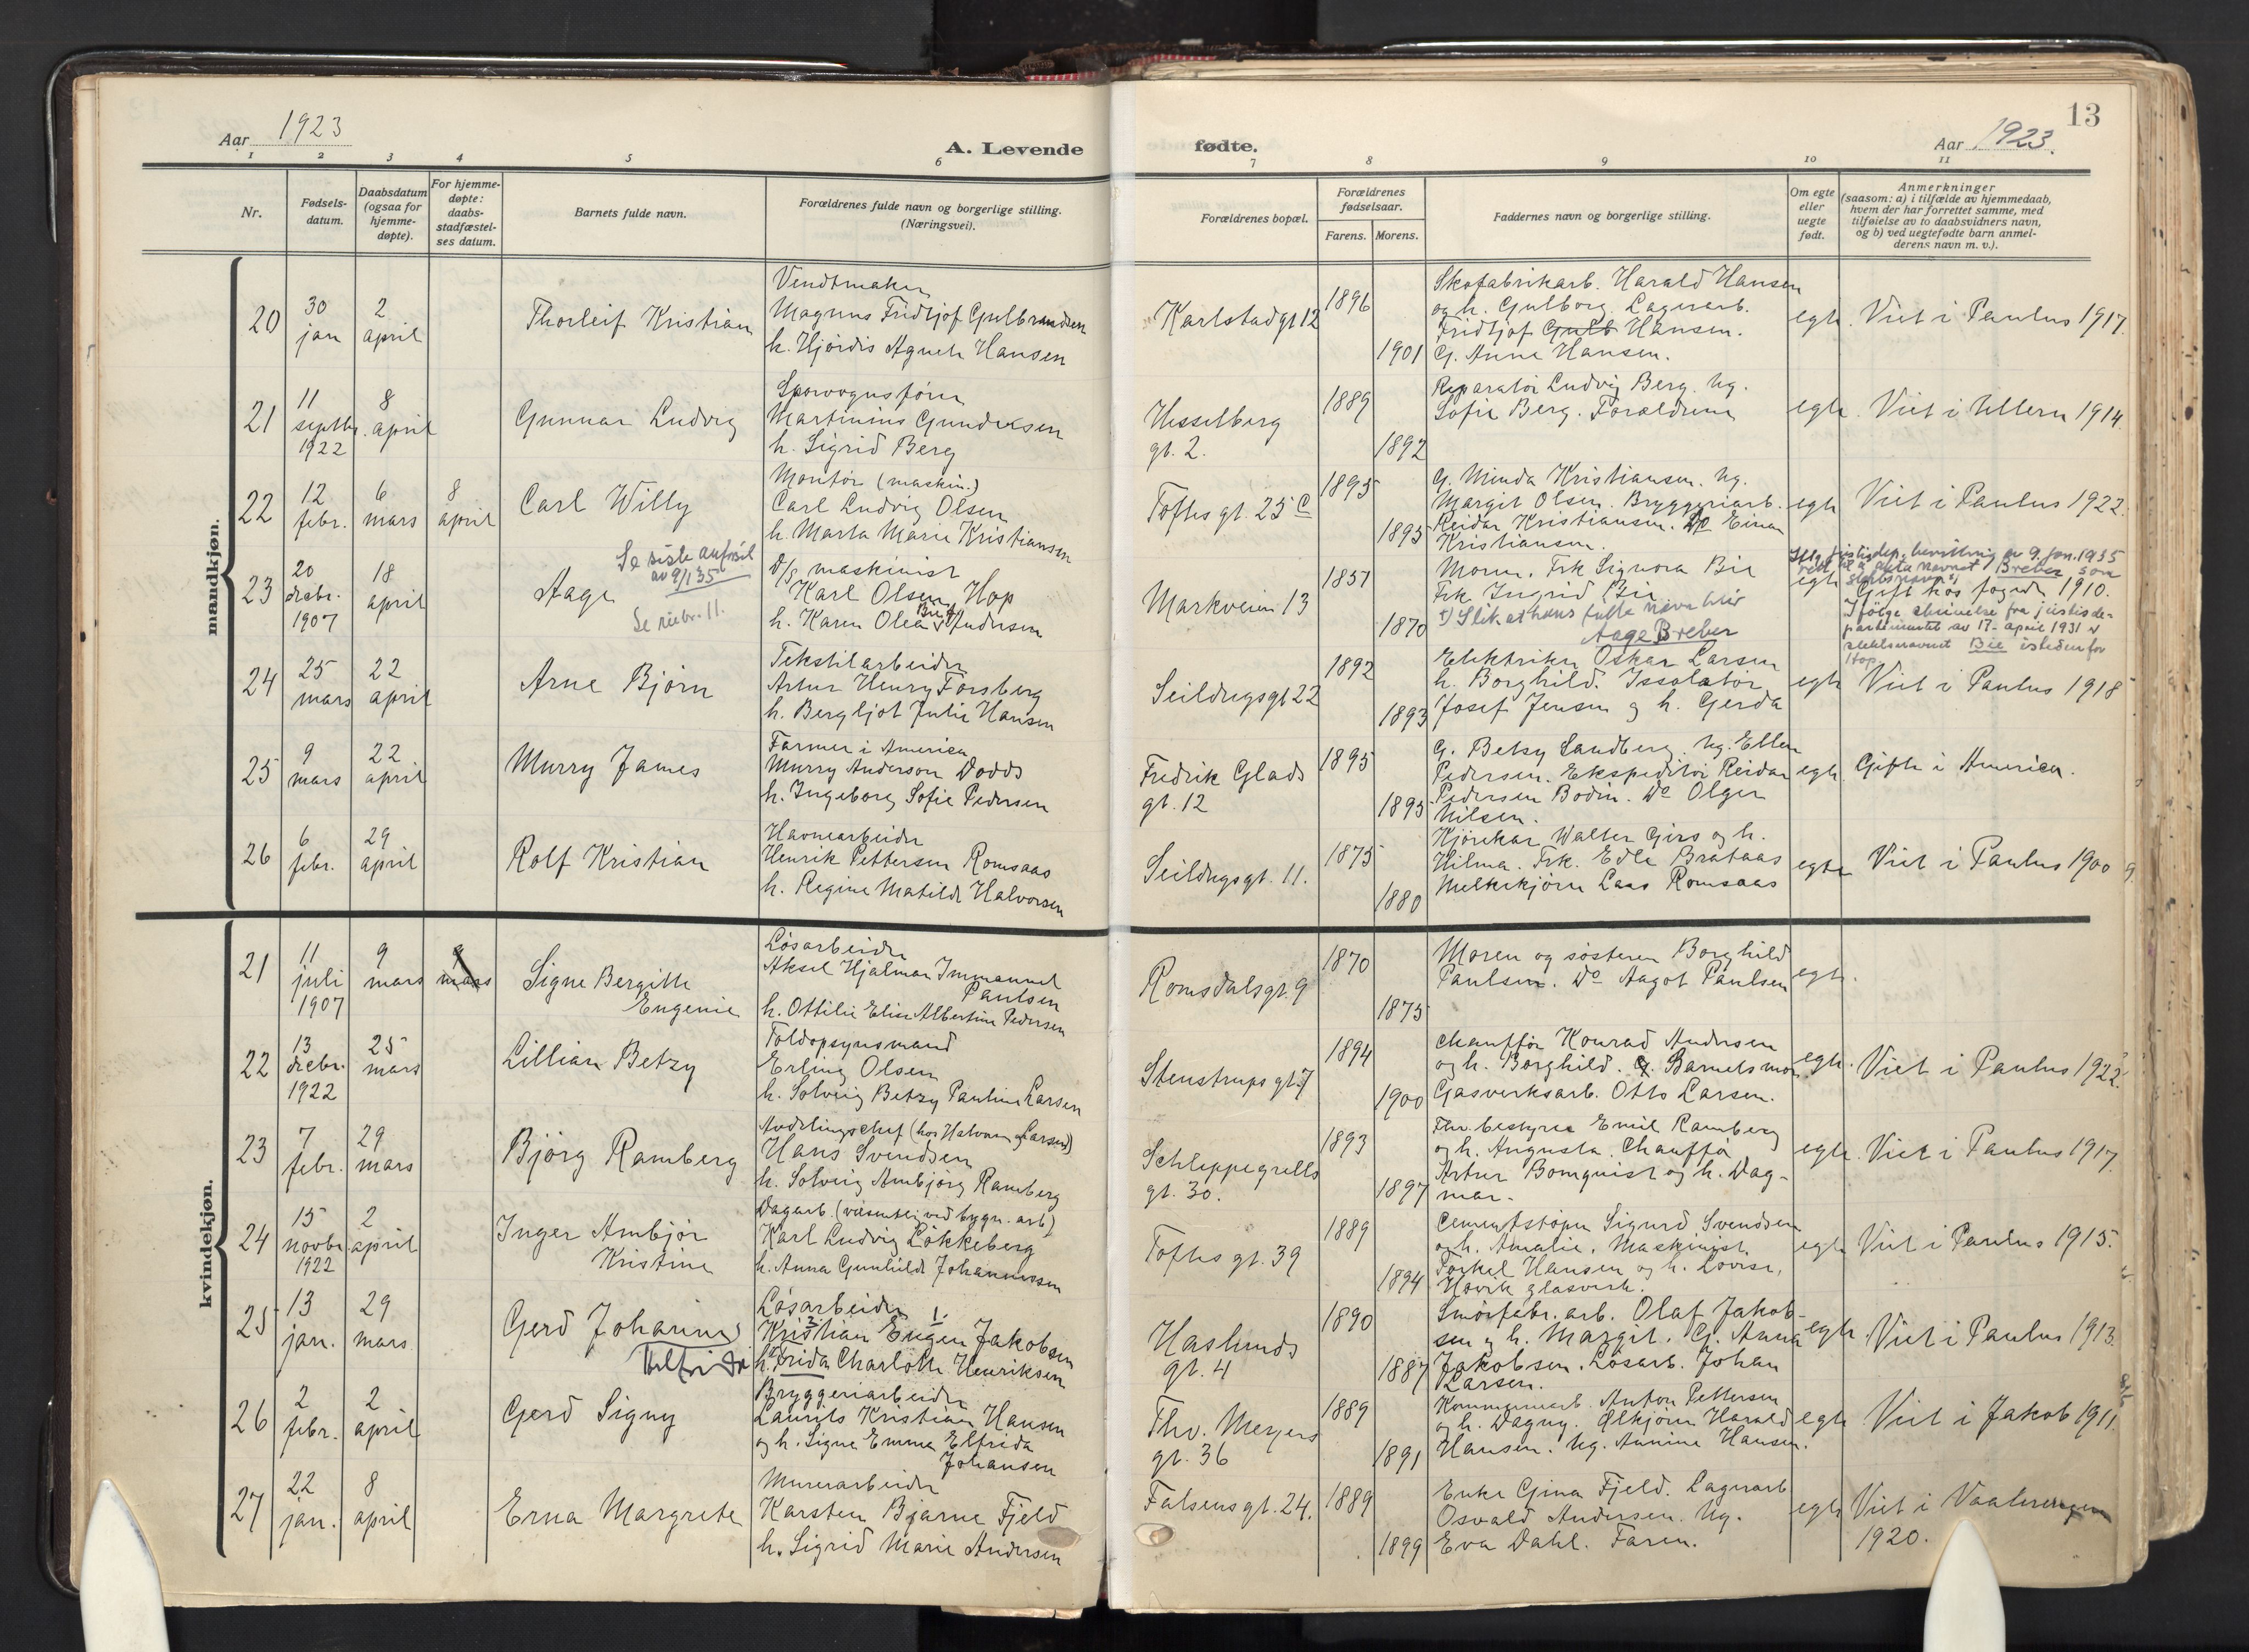 13
Aar 1923
A. Levende
fødte.
Aar 1923.
1 2 3 4 5 6 7 8 9 10 11
Nr.
Fødsels-
datum.
Daabsdatum
(ogsaa for
hjemme-
døpte).
For hjemme-
døpte:
daabs-
stadfæstel-
ses datum.
Barnets fulde navn.
Forældrenes fulde navn og borgerlige stilling.
(Næringsvei).
Forældrenes bopæl.
Forældrenes
fødselsaar.
Farens. Morens.
Faddernes navn og borgerlige stilling.
Om egte
eller
uegte
født.
Anmerkninger
(saasom: a) i tilfælde av hjemmedaab,
hvem der har forrettet samme, med
tilføielse av to daabsvidners navn,
og b) ved uegtefødte barn anmel-
derens navn m. v.).
mandkjøn.
20
30
jan
2
april
Thorleif Kristian
Magnus Fridtjof Gulbrandsen
h. Hjördis Agnete Hansen
Karlstadgt 12
1896
1901
Skofabrikarb. Harald Hansen
og h. Gulborg. Lagerarb.
Fridtjof Gulb Hansen.
G. Anne Hansen.
egte.
Viet i Paulus 1917.
21
11
septbr.
1922
8
april
Gunnar Ludvig
Sporvognsförer
Martinius Gundersen
h. Sigrid Berg
Hesselberg
gt. 2.
1889
1892
Reparatör Ludvig Berg. Ug.
Sofie Berg. Forældrene
egte.
Viet i Ullern 1914.
22
12
febr.
6
mars
8
april
Carl Willy
Montör (maskin.)
Carl Ludvig Olsen
h. Marta Marie Kristiansen
Toftesgt. 25 c
1895
1895
G. Minda Kristiansen. Ug.
Margit Olsen. Bryggeriarb.
Reidar Kristiansen. Do Einar
Kristiansen.
egte
Viet i Paulus 1922.
23
20
decbr.
1907
18
april
Aage
Se siste anförsel
av 9/1 35
Se rubr. 11.
D/S maskinist
Karl Olsen Hop
h. Karen Olea Bie Andersen
Markveien 13
1857
1870
Moren. Frk Signora Bie
Frk Ingrid Bie
1) Slik at hans fulle navn blir
Aage Breber
egte
Iflg. justisdep. bevillning av 9. jan. 1935
rett til å ta navnet Breber som
slektsnavn.1)
Gift hos fogden 1910.
Ifölge skrivelse fra justisde-
partementet av 17. april 1931
slektsnavnet Bie istedenfor
Hop.
24
25
mars
22
april
Arne Björn
Tekstilarbeider
Artur Henry Forsberg
h. Bergljot Julie Hansen
Seildugsgt 22
1892
1893
Elektriker Oskar Larsen
h. Borghild. Issolatör
Josef Jensen og h. Gerda
egte
Viet i Paulus 1918
25
9
mars
22
april
Murry James
Farmer i America
Murry Anderson Dodds
h. Ingeborg Sofie Pedersen
Fredrik Glads
gt. 12
1895
1895
G. Betsy Sandberg. Ug. Ellen
Pedersen. Ekspeditör Reidar
Pedersen Bodin. Do Olger
Nilsen.
egte
Gifte i America.
26
6
febr.
29
april
Rolf Kristian
Havnearbeider
Henrik Pettersen Romsaas
h. Regine Matilde Halvorsen
Seildugsgt. 11.
1875
1880
Kjörekar Walter Girs og h.
Hilma. Frk. Edle Brataas
Melkekjörer Lars Romsaas
egte
Viet i Paulus 1900
kvindekjøn.
21
11
juli
1907
9
mars
9
mars
Signe Bergitte
Eugenie
Lösarbeider
Aksel Hjalmar Immanuel
Paulsen
h. Ottilie Elise Albertine Pedersen
Romsdalsgt. 9
1870
1875
Moren og söstren Borghild
Paulsen. Do Aagot Paulsen
egte.
22
13
decbr.
1922
25
mars
Lillian Betzy
Toldopsynsmand
Erling Olsen
h. Solveig Betzy Pauline Larsen
Stenstrupsgt. 7
1894
1900
Chaufför Konrad Andersen
og h. Borghild. Barnets mor
Gasverksarb. Otto Larsen.
egte.
Viet i Paulus 1922.
23
7
febr.
29
mars
Björg Ramberg
Avdelingschef (hos Halvorsen & Larsen)
Hans Svendsen
h. Solveig Ambjörg Ramberg
Schleppegrells
gt. 30.
1893
1897
Fhv. bestyrer Emil Ramberg
og h. Augusta. Chaufför
Artur Bomquist og h. Dag-
mar.
egte.
Viet i Paulus 1917.
24
15
novbr.
1922
2
april
Inger Ambjör
Kristine
Dagarb. (væsentlig ved bygn. arb)
Karl Ludvig Lökkeberg
h. Anna Gunhilde Johannessen
Toftes gt. 39
1889
1894
Cementstöper Sigurd Svendsen
og h. Amalie. Maskinist
Torkel Hansen og h. Lovise,
Hövik glasverk.
egte
Viet i Paulus 1915.
25
13
jan.
29
mars
Gerd Johanne
Elfrida
Lösarbeider
Kristian Eugen Jakobsen
h. Frida Charlotte Henriksen
Haslunds
gt. 4
1890
1887
Smörfabr. arb. Olaf Jakob-
sen og h. Margit. G. Anna
Jakobsen. Lösarb. Johan
Larsen.
egte.
Viet i Paulus 1913.
26
2
febr.
2
april
Gerd Signy
Bryggeriarbeider
Laurits Kristian Hansen
og h. Signe Emma Elfrida
Johansen
Thv. Meyers
gt. 36
1889
1891
Kommunearb. Anton Pettersen
og h. Dagny. Ölkjörer Harald
Hansen. Ug. Annine Hansen.
egte
Viet i Jakob 1911.
27
22
jan.
8
april
Erna Margrete
Murerarbeider
Karsten Bjarne Fjeld
h. Sigrid Marie Andersen
Falsensgt. 24.
1889
1899
Enke Gina Fjeld. Lagerarb
Osvald Andersen. Ug.
Eva Dahl. Faren.
egte
Viet i Vaalerengen
1920.